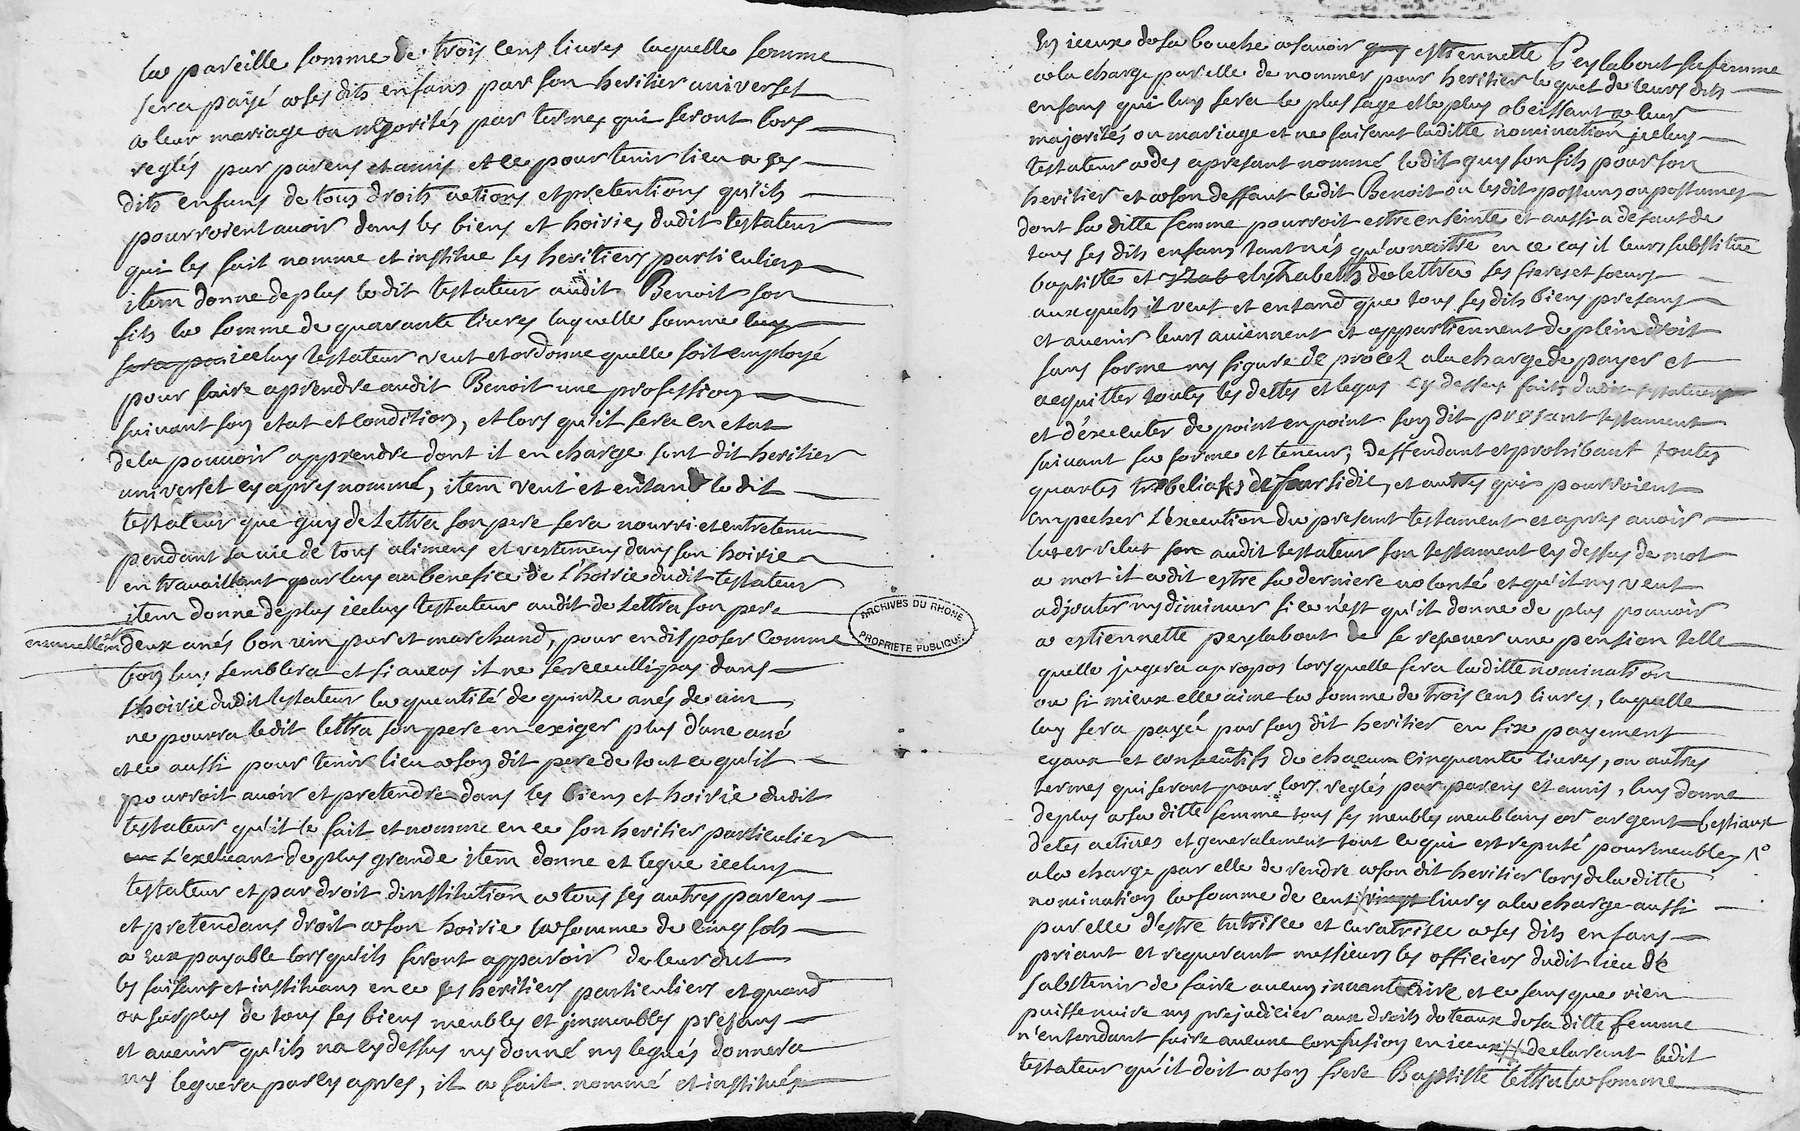 la pareille somme de trois cens livres laquelle somme
sera payé a ses dits enfans par son heritier universel
a leur mariage ou majorités par termes qui seront lors
reglés par parens et amis et ce pour tenir lieu a ses
dits enfans de tous droits actions et pretentions qu'ils
pourroient avoir dans les biens et hoiries dudit testateur
qui les fait nomme et institue ses heritiers particuliers
item donne de plus le dit testateur audit Benoit son
fils la somme de quarante livres laquelle somme luy
sera pai icelluy testateur veut et ordonne quelle soit employé
pour faire aprendre audit Benoit une profession
suivant son etat et condition, et lors qu'il sera en etat
de la pouvoir apprendre dont il en charge sont dit heritier
universel cy apres nommé, item veut et entand le dit
testateur que guy de Lettra son pere sera nourri et entretenu
pendant sa vie de tous alimens et vestemens dans son hoirie
en travaillant par luy au benefice de l'hoirie dudit testateur
item donne de plus icelluy testateur audit de Lettra son pere
annuellement deux anés bon vin pur et marchand, pour en disposer comme
bon luy semblera et si au cas il ne se receuilli pas dans
l'hoirie dudit testateur la quantité de quinze anés de vin
ne pourra ledit lettra son pere en exiger plus d'une ané
et ce aussi pour tenir lieu a son dit pere de tout ce qu'il
pourroit avoir et pretendre dans les biens et hoirie dudit
testateur qu'il le fait et nomme en ce son heritier particulier
L'excluant de plus grande item donne et legue icelluy
testateur et par droit d'institution a tous ses autres parens
et pretendans droit a son hoirie la somme de cinq sols
a eux payable lorsqu'ils feront apparoir de leur dut
les faisant et instituans en ce ses heritiers particuliers et quand
au surplus de tous ses biens meubles et immeubles presans
et avenir qu'ils na cy dessus ny donné ny legués donnera
ny leguera par cy apres, il a fait nommé et institués
En iceux de sa bouche a savoir guy estiennette Peylabout sa femme
a la charge par elle de nommer pour heritier lequel de leurs dits
enfans qui luy sera le plus sage et le plus obeissant a leur
majorités ou mariage et ne faisant laditte nomination icelluy
testateur a des apresant nommé ledit guy son fils pour son
heritier et a son deffaut ledit Benoit ou lesdit possums ou postumes
dont sa ditte femme pourroit estre enseinte et aussi a defaut de
tous ses dits enfans tant nés qu'a naitre en ce cas il leurs substitue
baptiste et Izab elizhabeth de lettra ses freres et soeurs
auxquels il veut et entand que tous ses dits biens presans
et avenir leurs aviennent et appartiennent de plein droit
sans forme ny figure de procez a la charge de payer et
acquitter toutes les dettes et legas cy dessus faits dudit testateur
et d'éxecuter de point en point son dit presant testament
suivant sa forme et teneur, deffendant et prohibant toutes
quartes et autres qui pourroient
empecher L'éxecution du presant testament et apres avoir
lut et relut son audit testateur son testament cy dessus de mot
a mot il a dit estre sa derniere volonté et qu'il ny veut
adjouter ny diminuer si ce n'est qu'il donne de plus pouvoir
a estiennette peylabout de se reserver une pension telle
quelle jugera apropos lorsquelle fera laditte nomination
ou si mieux elle aime la somme de trois cens livres, laquelle
luy sera payée par son dit heritier en six payement
egaux et consecutifs de chacun cinquante livres, ou autres
termes qui seront pour lors reglés par parens et amis, luy donne
de plus a sa ditte femme tous ses meubles meublans or argent bestiaux
detes actives et generalement tout ce qui est reputé pour meubles
a la charge par elle de rendre a son dit heritier lors de la ditte
nomination la somme de cent vingt livres a la charge aussi
par elle d'estre tutrisse et curatrisse a ses dits enfans
priant et requerant messieurs les officiers dudit lieu de
s'abstenir de faire aucun inventairire et ce sans que rien
puisse nuire ny prejudicier aux droits doteaux de sa ditte femme
n'entendant faire aucune confusion en iceux # declarant ledit
testateur qu'il doit a son frere Baptiste lettra la somme
ARCHIVES DU RHONE
PROPRIETE PUBLIQUE